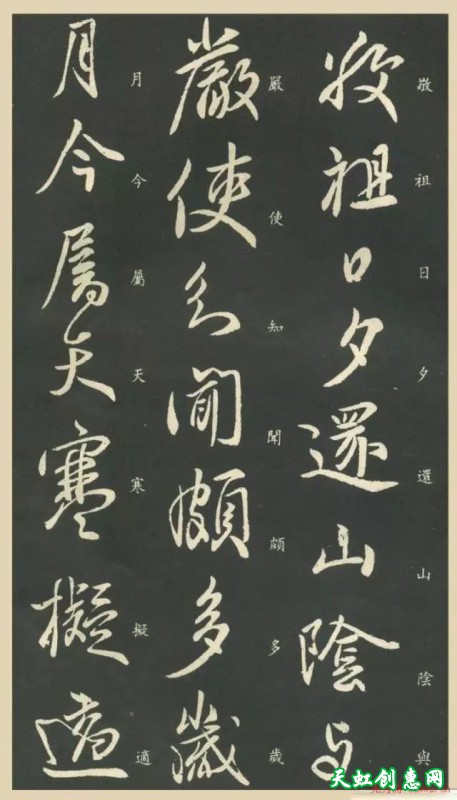 敬祖日夕還山陰與
敬祖日夕還山陰與
嚴使知聞頗多歲
嚴使知聞頗多歲
月今屬天寒擬適
月今屬天寒擬適
天虹创意网